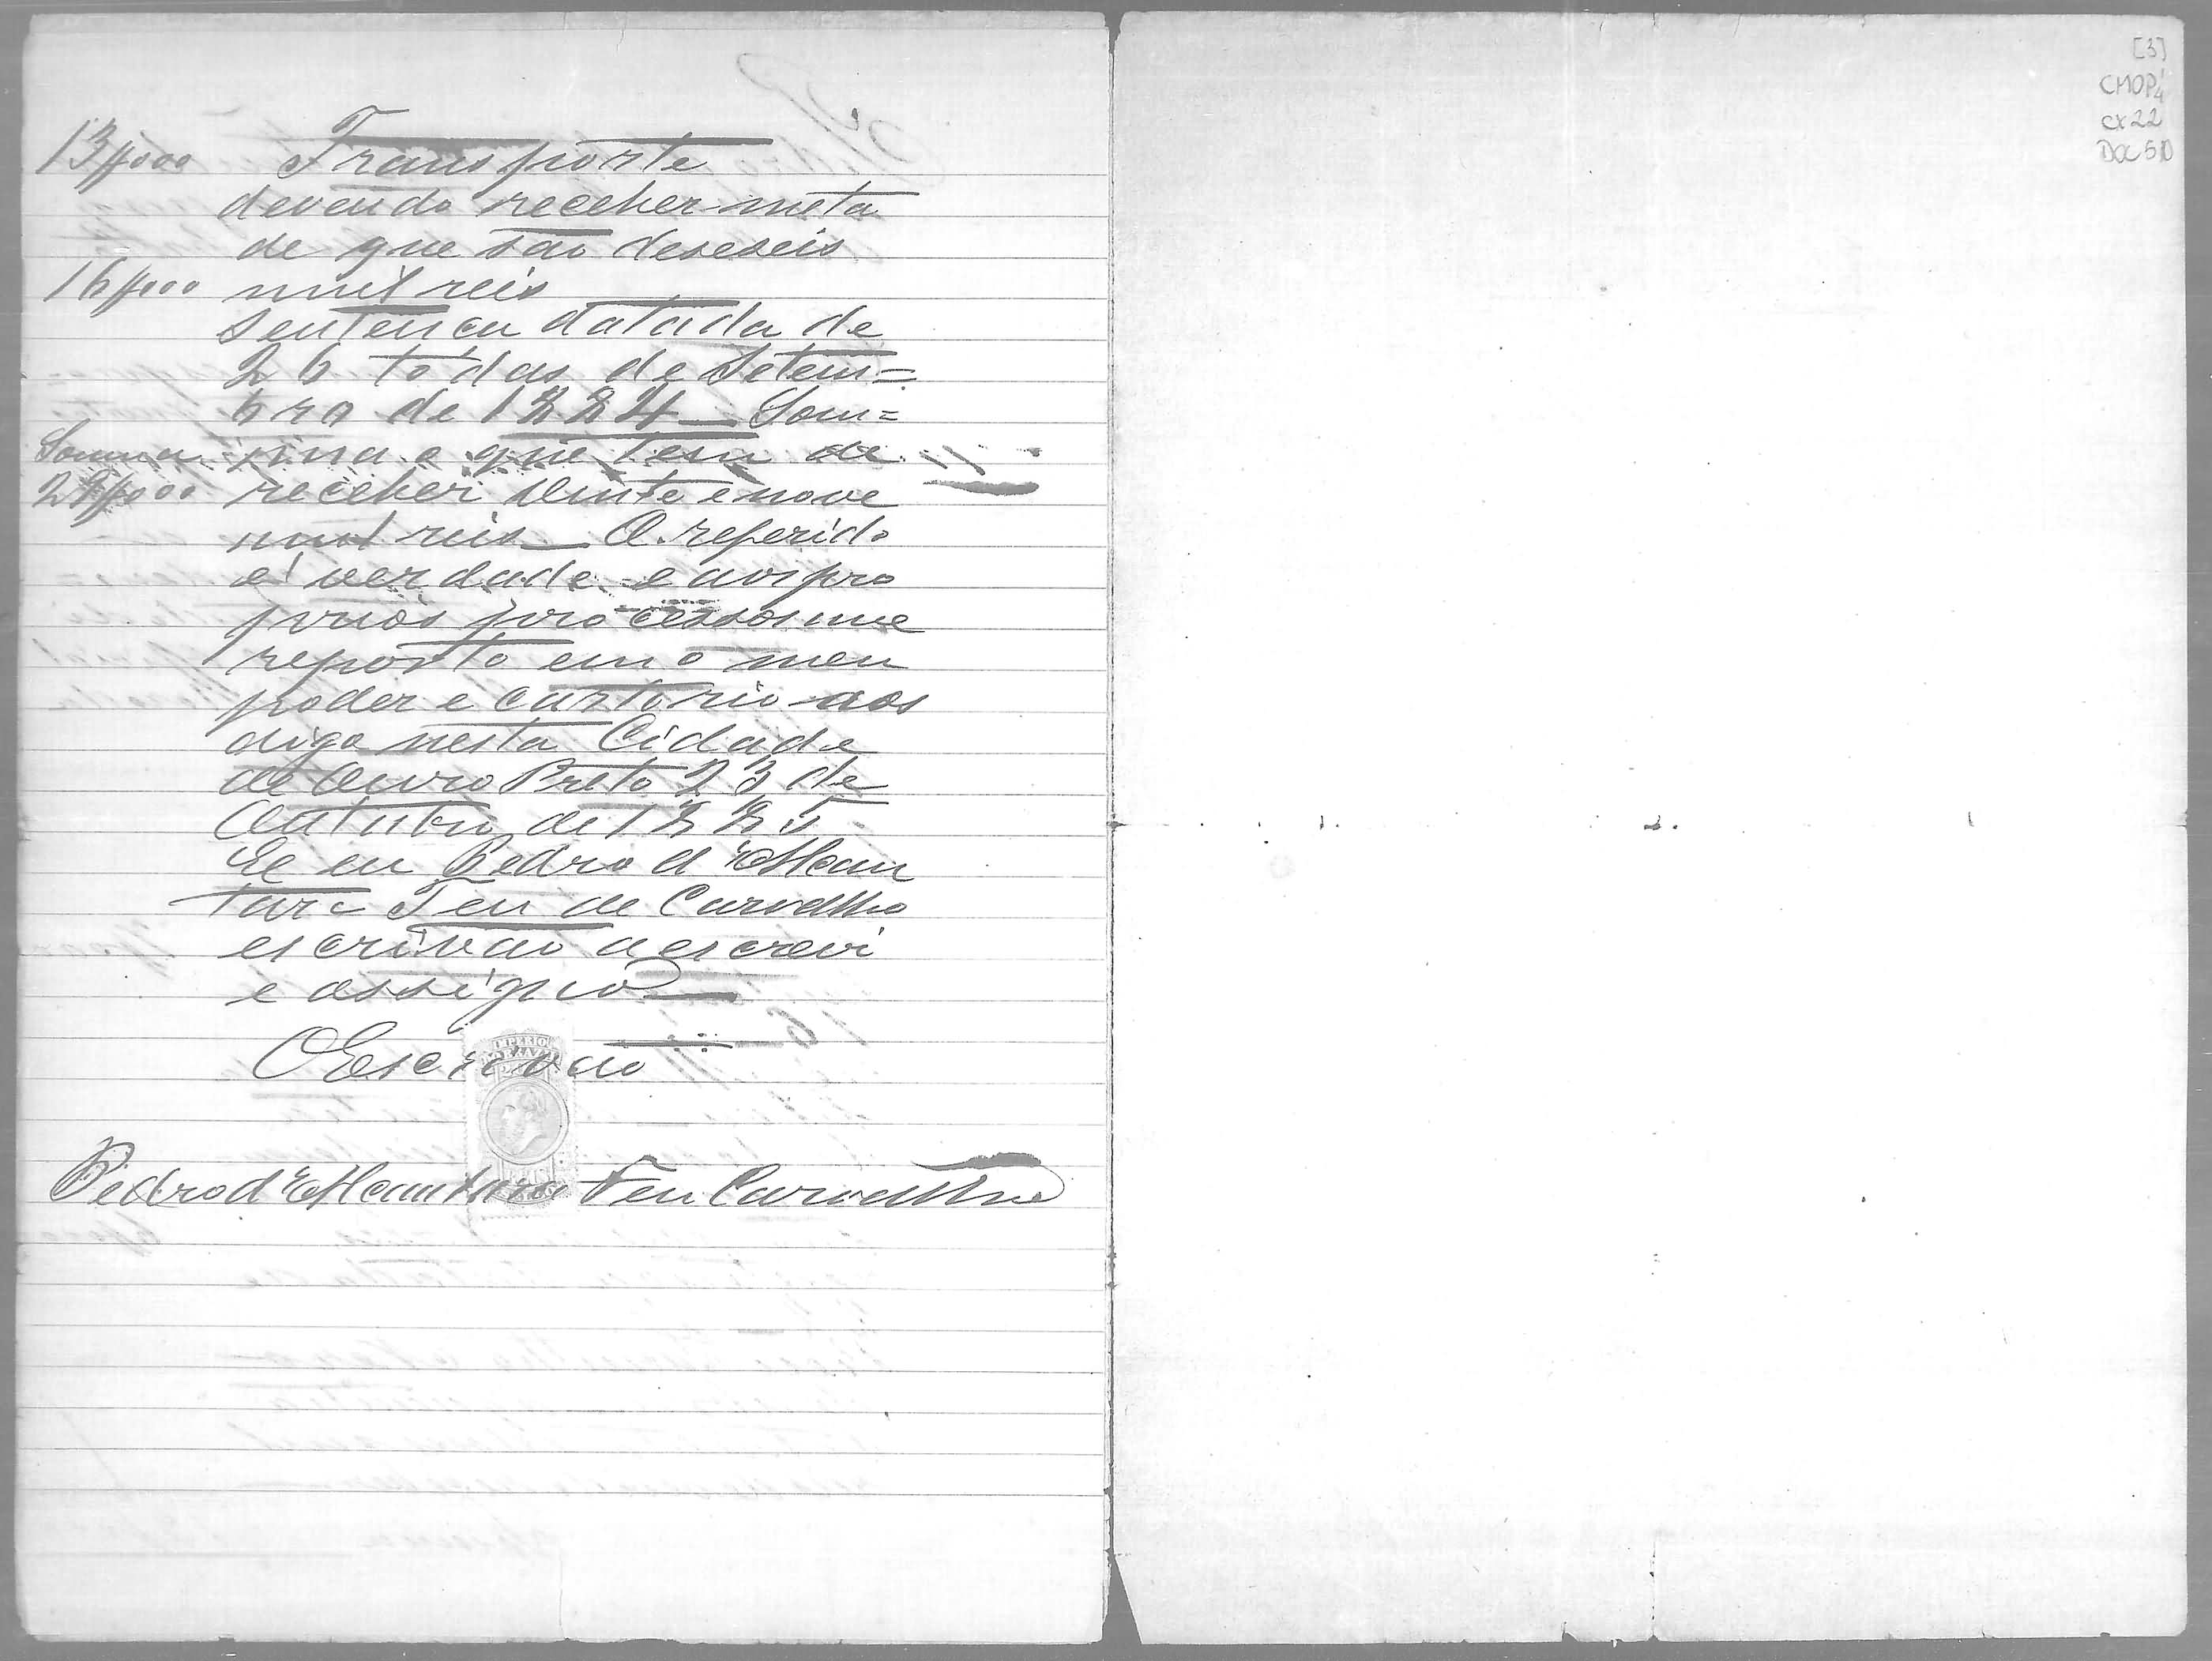 [3]
CMOP
cx 22
DOC 510
13$000 Transporte
devendo receber meta
de que são deseseis
16$000 mil reis
Sentença datada de
26 todas de Setem=
bro de 1884 Som=
Somma ma o que tem de
29$000 receber vinte e nove
mil reis O referido
é verdade e aos pro
prios processos me
reporto em o meu
poder e cartorio aos
digo nesta Cidade
de Ouro Preto 23 de
Outubro de 1885
Eu Pedro d'Alcan
tara Feu de Carvalho
escrivão a escrevi
e assigno
O Escrivão
IMPERIO
Pedro d'Alcantara Feu Carvalho